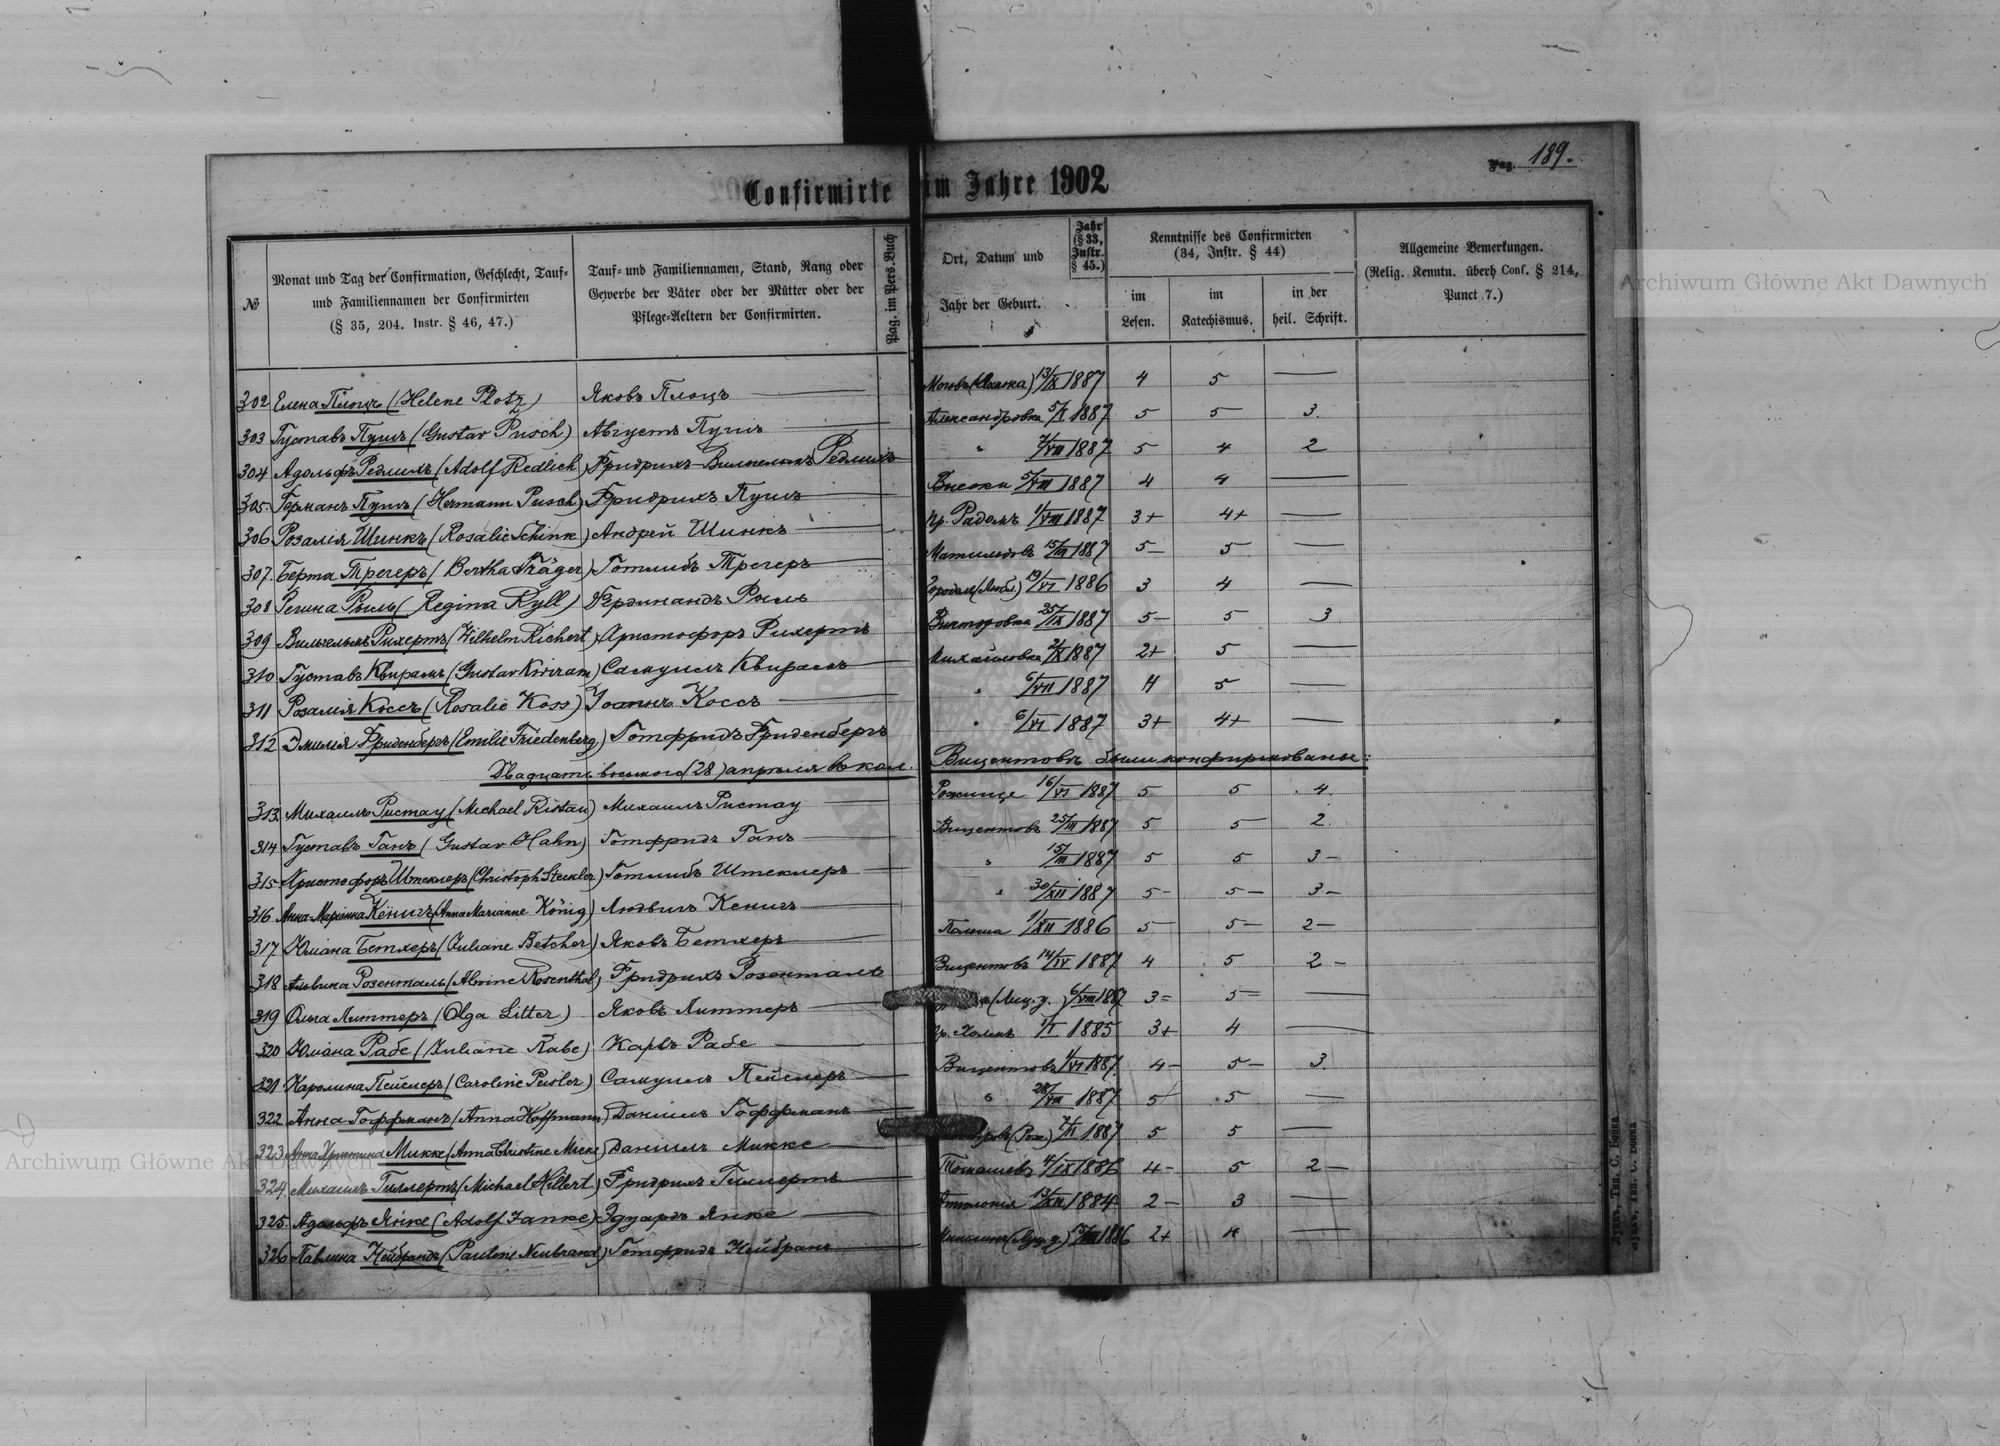 Pag. 189.
Confirmirte im Jahre 1902
№
Monat und Tag der Confirmation, Geschlecht, Tauf-
und Familiennamen der Confirmirten
(§ 35, 204. Instr. § 46, 47.)
Tauf- und Familiennamen, Stand, Rang oder
Gewerbe der Väter oder der Mütter oder der
Pflege-Aeltern der Confirmirten.
Pag. im Pers.-Buch
Ort, Datum und
Jahr der Geburt.
Jahr
(§ 33,
Instr.
§ 45.)
Kenntnisse des Confirmirten
(34, Instr. § 44)
im
Lesen.
im
Katechismus.
in der
heil. Schrift.
Allgemeine Bemerkungen.
(Relig. Kenntn. überh Conf. § 214,
Punct 7.)
302 Елена Плоцъ (Helene Plotz) Яковъ Плоцъ — 13/IX 1887 4 5 —
303 Густавъ Пушъ (Gustav Pusch) Августъ Пушъ — Александровка 5/X 1887 5 5 3
304 Адольфъ Редлихъ (Adolf Redlich) Фридрихъ-Вильгельмъ Редлихъ " 7/VIII 1887 5 4 2
305 Германъ Пушъ (Hermann Pusch) Фридрихъ Пушъ — 1887 4 4 —
306 Розалія Шинкъ (Rosalie Schink) Андрей Шинкъ — гр. Радомъ 1/VIII 1887 3+ 4+ —
307 Берта Трегеръ (Bertha Träger) Готлибъ Трегеръ — Матильдовъ 15/III 1887 5- 5 —
308 Регина Рыль (Regina Ryll) Фердинандъ Рыль 19/VI 1886 3 4 —
309 Вильгельмъ Рихертъ (Wilhelm Richert) Христофоръ Рихертъ Викторовка 25/IX 1887 5- 5 3
310 Густавъ Квирамъ (Gustav Kwiram) Самуилъ Квирамъ — Михайловка 2/X 1887 2+ 5 —
311 Розалія Коссъ (Rosalie Koss) Іоаннъ Коссъ — " 6/VII 1887 4 5 —
312 Эмилія Фриденбергъ (Emilie Friedenberg) Готфридъ Фриденбергъ " 6/VI 1887 3+ 4+ —
Двадцать восьмого (28) апрѣля въ кол. Вицентовъ были конфирмованы:
313 Михаилъ Ристау (Michael Ristau) Михаилъ Ристау — Рожище 16/VI 1887 5 5 4
314 Густавъ Ганъ (Gustav Hahn) Готфридъ Ганъ — Вицентовъ 25/III 1887 5 5 2
315 Христофоръ Штеклеръ (Christoph Steckler) Готлибъ Штеклеръ — " 15/III 1887 5 5 3-
316 Анна-Маріанна Кёнигъ (Anna Marianne König) Людвигъ Кенигъ — " 30/XII 1887 5- 5- 3-
317 Юліана Бетхеръ (Juliane Betcher) Яковъ Бетхеръ — 1/XII 1886 5 5- 2-
318 Альвина Розенталь (Alvine Rosenthal) Фридрихъ Розенталь Вицентовъ 14/IV 1887 4 5 2-
319 Ольга Литтеръ (Olga Litter) Яковъ Литтеръ — (Луц. у.) 6/VIII 1887 3= 5= —
320 Юліана Рабе (Juliane Rabe) Карлъ Рабе — гр. Холмъ 1/I 1885 3+ 4 —
321 Каролина Пейслеръ (Caroline Peisler) Самуилъ Пейслеръ — Вицентовъ 4/VI 1887 4- 5- 3
322 Анна Гоффманъ (Anna Hoffmann) Даніилъ Гоффманъ — " 28/VIII 1887 5 5 —
323 Анна Христина Микке (Anna Christine Micke) Даніилъ Микке — 1887 5 5 —
324 Михаилъ Гиллертъ (Michael Hillert) Фридрихъ Гиллертъ Томашевъ 4/IX 1886 4- 5 2-
325 Адольфъ Янке (Adolf Janke) Эдуардъ Янке — Антонія 13/XII 1884 2- 3 —
326 Павлина Нейбрандъ (Pauline Neubrand) Готфридъ Нейбранъ 1886 2+ 4 —
Archiwum Główne Akt Dawnych
Archiwum Główne Akt Dawnych